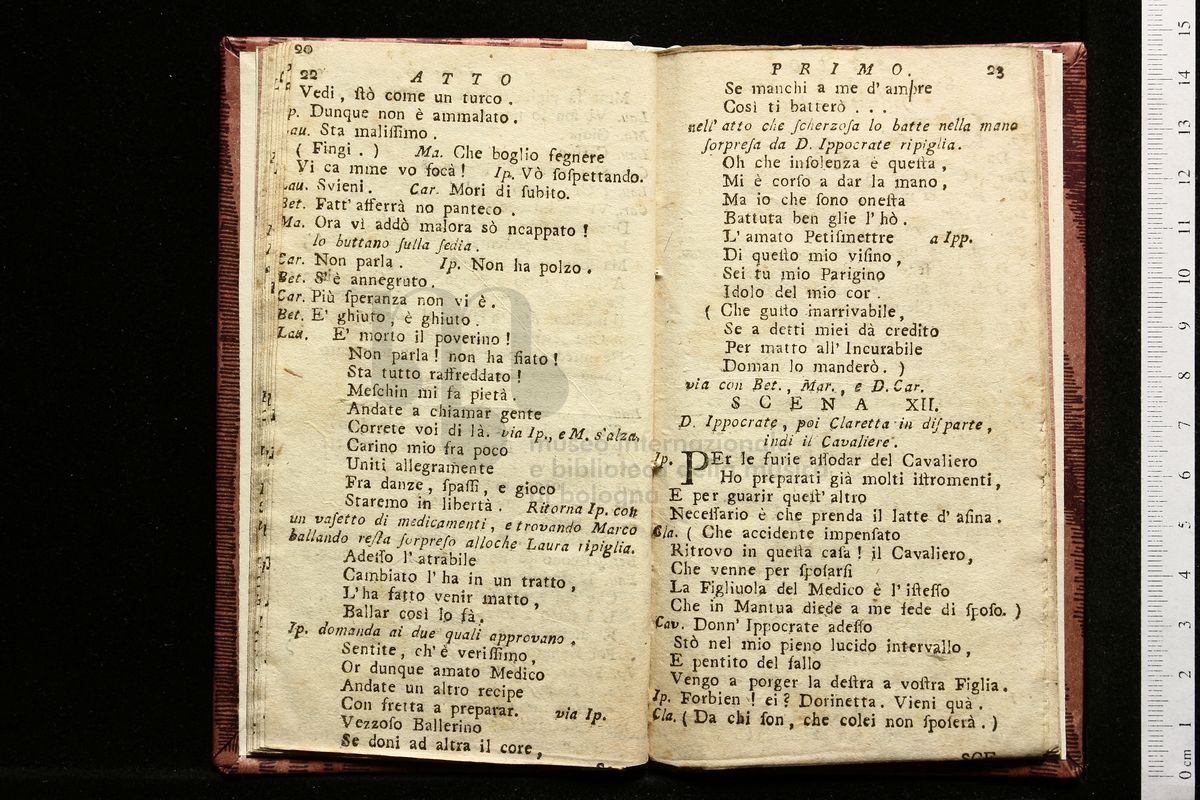 20
22 ATTO
Vedi, ſtò come un turco.
p. Dunque non è ammalato.
au. Sta maliſſimo.
( Fingi. ) Ma. Che boglio ſegnere
Vi ca mme vo ſocà! Ip. Vò ſoſpettando.
Lau. Svieni. Car. Mori di ſubito.
Bet. Fatt' afferrà no panteco.
Ma. Ora vi addò malora sò ncappato!
lo buttano ſulla ſedia.
Car. Non parla. Ip. Non ha polzo.
Bet. S'è annegruto.
Car. Più ſperanza non vi è.
Bet. E' ghiuto, è ghiuto.
Lau. E' morto il poverino!
Non parla! non ha fiato!
Sta tutto raffreddato!
Meſchin mi fa pietà.
Andate a chiamar gente
Correte voi di là. via Ip., e M. s'alza,
Carino mio fra poco
Uniti allegramente
Fra danze, ſpaſſi, e gioco
Staremo in libertà. Ritorna Ip. con
un vaſetto di medicamenti, e trovando Marco
ballando reſta ſorpreſo alloche Laura ripiglia.
Adeſſo l'atrabile
Cambiato l'ha in un tratto,
L'ha fatto venir matto,
Ballar così lo fà.
Ip. domanda ai due quali approvano.
Sentite, ch'è veriſſimo,
Or dunque amato Medico
Andate un altro recipe
Con fretta a preparar. via Ip.
Vezzoſo Ballerino
Se doni ad altra il core,
PRIMO. 23
Se manchi a me d'amore
Così ti batterò . . .
nell' atto che ſcherzoſa lo batte nella mano
ſorpreſa da D. Ippocrate ripiglia.
Oh che inſolenza è queſta,
Mi è corſo a dar la mano,
Ma io che ſono oneſta
Battuta ben glie l'hò.
L'amato Petiſmettre a Ipp.
Di queſto mio viſino,
Sei tu mio Parigino
Idolo del mio cor.
( Che guſto inarrivabile,
Se a detti miei dà credito
Per matto all' Incurabile
Doman lo manderò. )
via con Bet., Mar., e D. Car.
SCENA XII.
D. Ippocrate, poi Claretta in diſparte,
indi il Cavaliere.
Ip. PEr le furie aſſodar del Cavaliero
Ho preparati già molti iſtromenti,
E per guarir queſt' altro
Neceſſario è che prenda il latte d'aſina.
Cla. ( Che accidente impenſato
Ritrovo in queſta caſa! il Cavaliero,
Che venne per ſpoſarſi
La Figliuola del Medico è l'iſteſſo
Che in Mantua diede a me fede di ſpoſo. )
Cav. Donn' Ippocrate adeſſo
Stò nel mio pieno lucido intervallo,
E pentito del fallo
Vengo a porger la deſtra a voſtra Figlia.
Ip. Forbien! ei? Dorinetta. Vieni quà.
Cla. ( Da chi ſon, che colei non ſpoſerà. )
museo internazionale
e biblioteca della musica
di bologna
15
14
13
12
11
10
9
8
7
6
5
4
3
2
1
0 cm